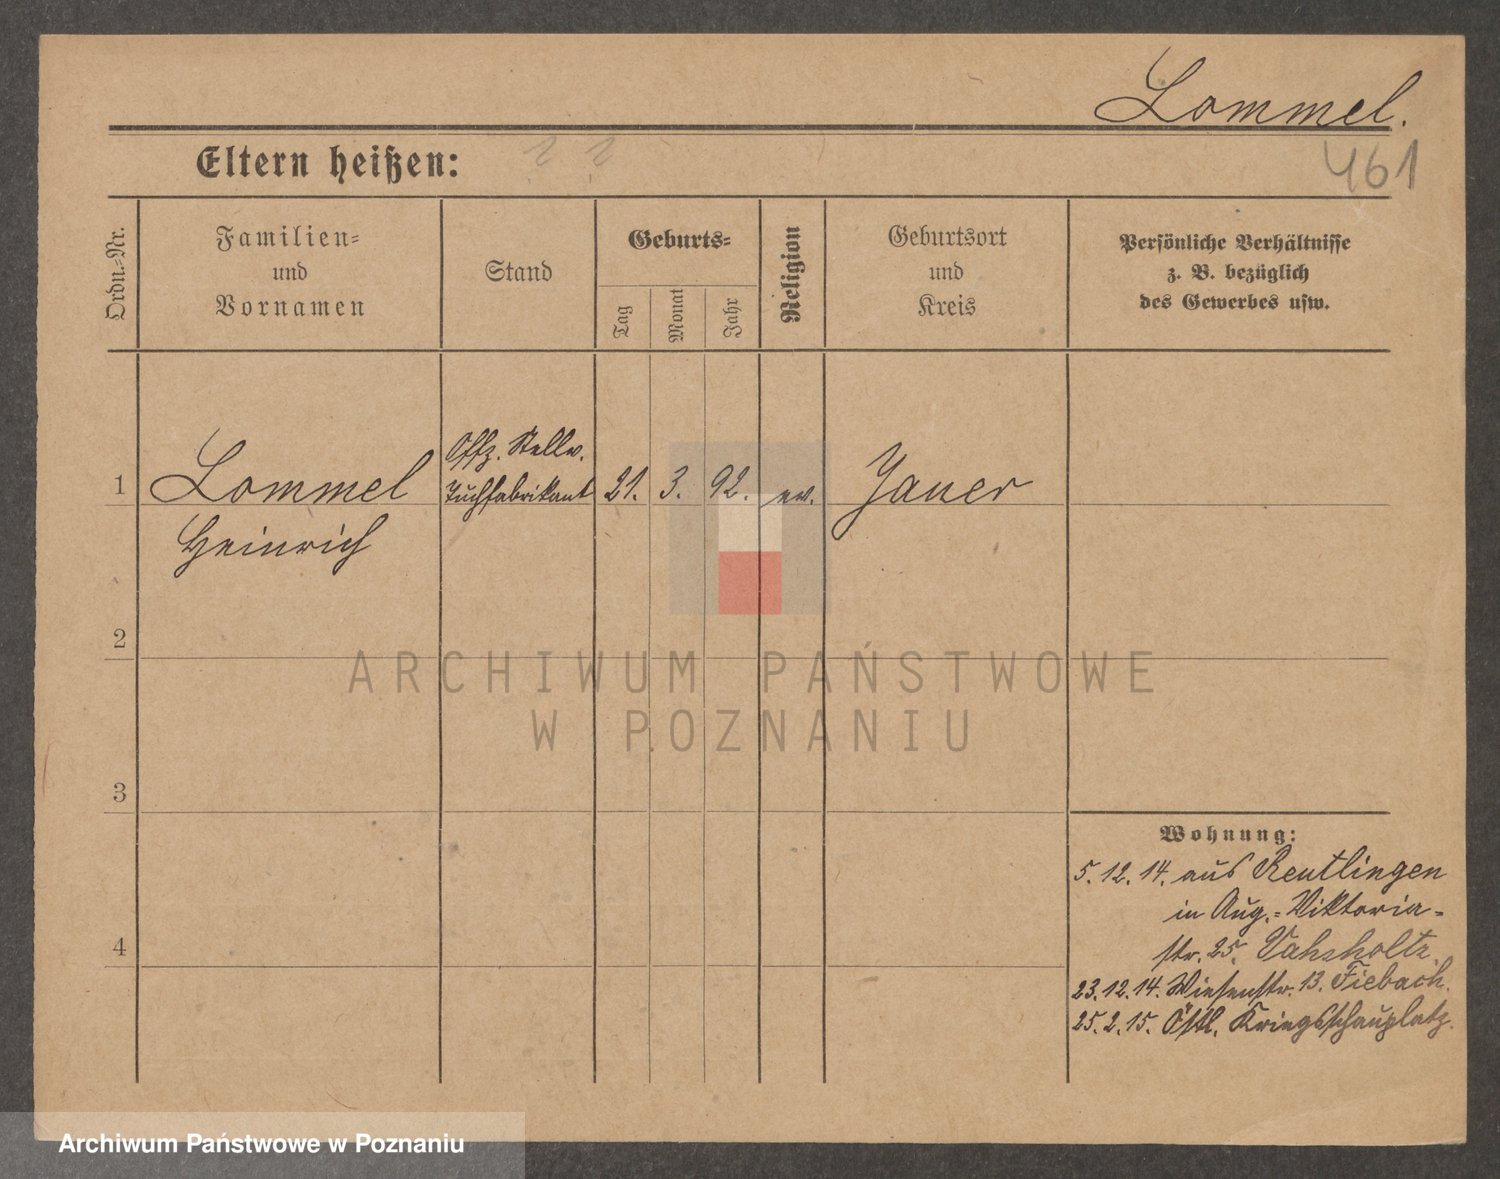 Lommel.
461
Eltern heißen: ? ?
Ordn.-Nr.
Familien-
und
Vornamen
Stand
Geburts-
Tag
Monat
Jahr
Religion
Geburtsort
und
Kreis
Persönliche Verhältnisse
z. B. bezüglich
des Gewerbes usw.
1 Lommel Offz. Stellv. Tuchfabrikant 21. 3. 92. ev. Jauer
Heinrich
2
3
4
Wohnung:
5.12.14. aus Reutlingen
in Aug.-Viktoria-
str. 25. Vahsholtz.
23.12.14. Wiesenstr. 13. Fiebach.
25.2.15. Östl. Kriegsschauplatz.
ARCHIWUM PAŃSTWOWE
W POZNANIU
Archiwum Państwowe w Poznaniu